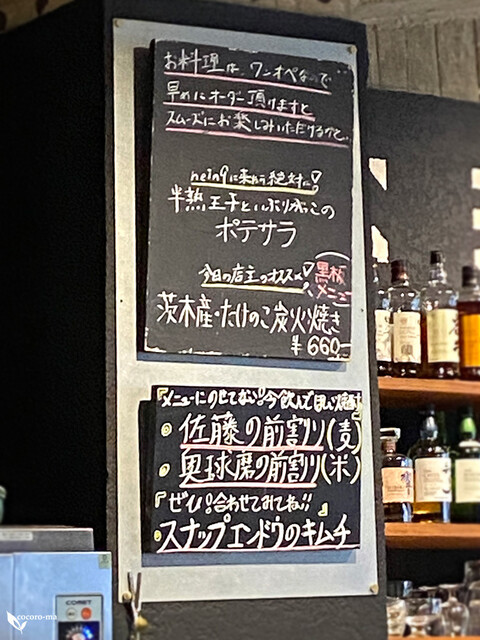 お料理は、ワンオペなので
早めにオーダー頂けますと
スムーズにお楽しみいただけるかと、
nein9に来たら絶対に!
半熟玉子といぶりがっこの
ポテサラ
今日の店主のオススメ!
黒板
メニュー
茨木産・たけのこ炭火焼き
¥660-
『メニューにのせてない!!今飲んでほしい焼酎』
佐藤の前割り(麦)
奥球磨の前割り(米)
『ぜひ!合わせてみてね!!』
・スナップエンドウのキムチ
COMET
cocoro-ma